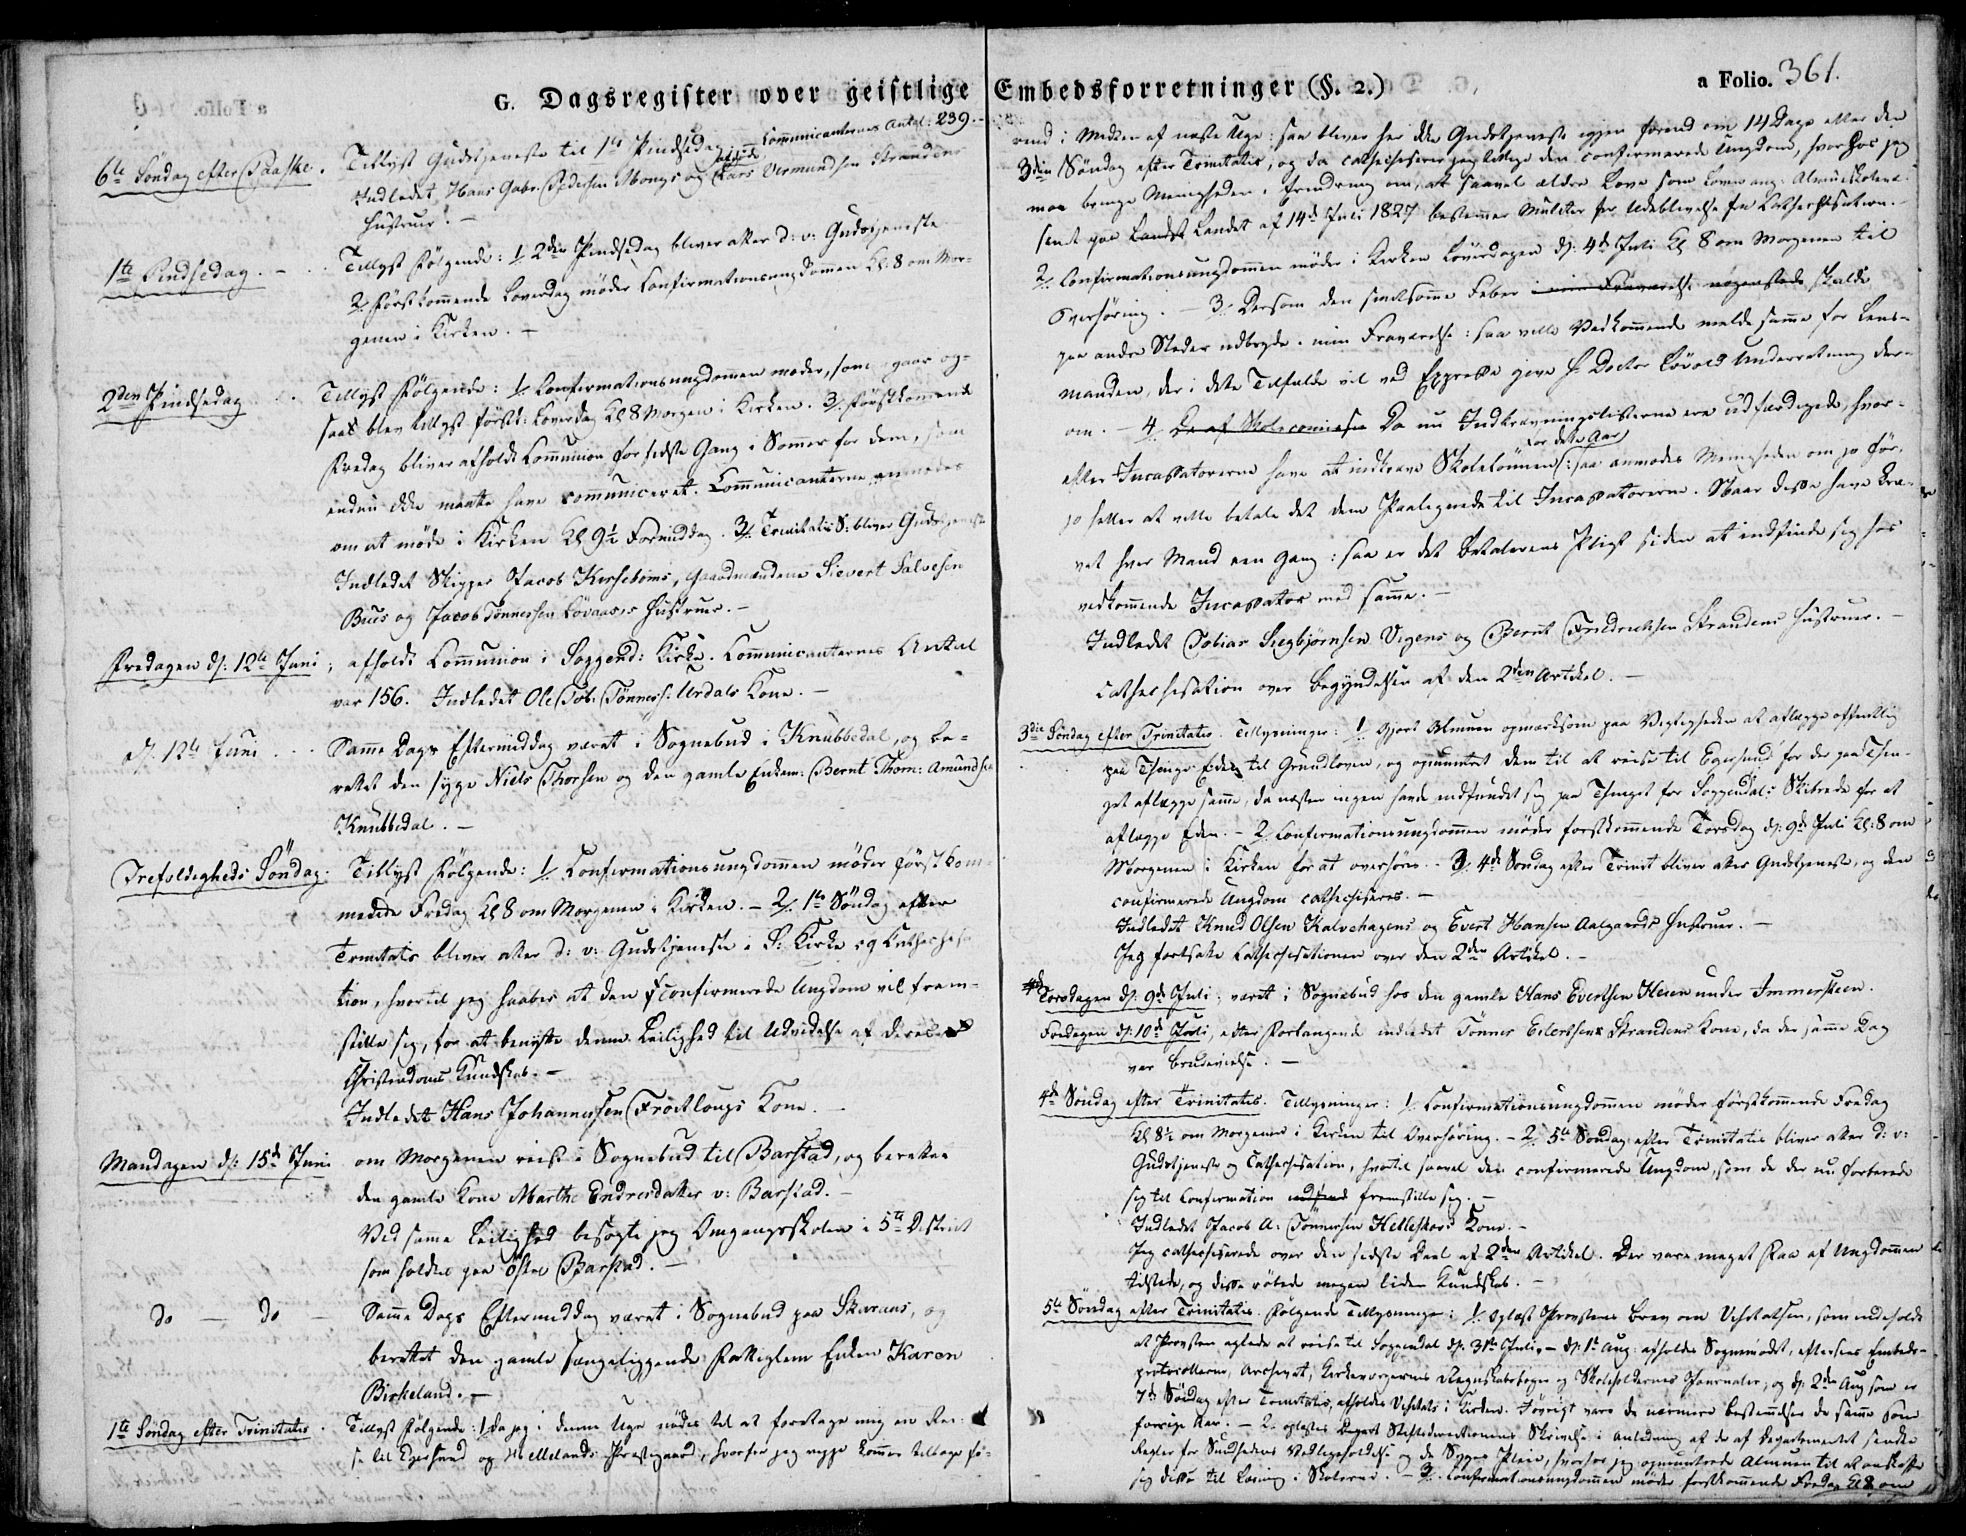 G. Dagsregister over geistlige Embedsforretninger (§. 2.)
a Folio. 361.
6te Söndag efter Paaske. Tillyst Gudstjeneste til 1ste Pindsedag. Communicanternes Antal: 239.
Indledet Hans Gabr. Pedersen Abongs og Lars Vermundsen Strandens
Hustruer. -
1ste Pindsedag. - Tillyst Følgende: 1/. 2den Pindsedag bliver atter d: v: Gudstjeneste
2/. Førstkommende Løverdag møder Confirmationsungdommen Kl: 8 om Mor-
genen i Kirken. -
2den Pindsedag Tillyst Følgende: 1/. Confirmationsungdommen møder, som igaar og-
saa blev tillyst førstk: Løverdag Kl 8 Morgen i Kirken. 2/. Førstkommende
Fredag bliver afholdt Communion for sidste Gang i Sommer for dem, som
endnu ikke maatte have communiceret. Communicanterne anmodes
om at møde i Kirken Kl 9½ Formiddag. 3/. Trinitatis S: bliver Gudstjeneste
Indledet Skipper Jacob Kirsebøms, Gaardmændene Sievert Salvesen
Bues og Jacob Tönnessen Løvaases Hustruer. -
Fredagen d: 12te Juni; afholdt Communion i Soggend: Kirke. Communicanternes Antal
var 156. Indledet Ole Tob: Tönness: Urdals Kone. -
d. 12te Juni Samme Dags Eftermiddag været i Sognebud i Knubbedal, og be-
rettet den syge Niels Thorsen og den gamle Enkem: Bernt Thom: Amunds
Knubbedal. -
Trefoldigheds Söndag. Tillyst Følgende: 1/. Confirmationsungdommen møder førstkom-
mende Fredag Kl 8 om Morgenen i Kirken. - 2/. 1ste Söndag efter
Trinitatis bliver atter d: v: Gudstjeneste i S: Kirke og Catechesa-
tion, hvortil jeg haaber at den confirmerede Ungdom vil frem-
stille sig, for at benytte denne Leilighed til Udvidelse af deres
Christendoms Kundskab. -
Indledet Hans Johannessen Frøitlougs Kone. -
Mandagen d: 15de Juni om Morgenen reist i Sognebud til Barstad, og berettet
den gamle Kone Marthe Endresdatter v: Barstad. -
Ved samme Leilighed besøgte jeg Omgangsskolen i 5te District
som holdtes paa Østre Barstad. -
do - do - Samme Dags Eftermiddag været i Sognebud paa Skaraas, og
berettet den gamle sengeliggende Fattiglem Enken Karen
Birkeland. -
1ste Söndag efter Trinitatis. Tillyst Følgende: 1/. Da jeg i denne Uge nødes til at foretage mig en Rei-
se til Egersund og Hellelands Præstegaard, hvorfra jeg neppe kommer tilbage fø-
rend i Midten af næste Uge: saa bliver her ikke Gudstjeneste igjen førend om 14 Dage eller den
3die Söndag efter Trinitatis, og da catechiserer jeg tillige den confirmerede Ungdom, hvorhos jeg
maa bringe Menigheden i Erindring om, at saavel ældre Love som Loven ang: Almueskolevæ-
senet paa Landet af 14de Juli 1827 bestemmer Mulkter for Udeblivelse fra Catechisation. -
2/. Confirmationsungdommen møder i Kirken Løverdagen d: 4de Juli Kl 8 om Morgenen til
Overhøring. - 3/. Dersom den smitsomme Feber i min Fraværelse nogensteds skulde
paa andre Steder udbryde i min Fraværelse: saa ville Vedkommende melde samme for Lens-
manden, der i dette Tilfælde vil ved Expresse give H: Doctor Løvold Underretning der-
om. - 4/. Da nu Indkrævningslisterne ere udfærdigede, hvor-
efter Incassatorerne have at indkræve Skolelønnen for dette Aar: saa anmodes Menigheden om jo før,
jo heller at ville betale det dem Paalignede til Incassatorerne. Naar disse have kræ-
vet hver Mand een Gang: saa er det Betalerens Pligt siden at indfinde sig hos
vedkommende Incassator med samme. -
Indledet Tobias Siegbjørnsen Vegens og Bernt Friedrichsen Strandens Hustruer. -
Catechisation over Begyndelsen af den 2den Artikel. -
3die Söndag efter Trinitatis. Tillysninger: 1/. Gjort Almuen opmærksom paa Vigtigheden at aflægge offentlig
paa Thinge Eden til Grundloven, og opmuntret dem til at reise til Egersund for der paa Thin-
get aflægge samme, da næsten ingen havde indfundet sig paa Thinget for Soggendals Skibrede for at
aflægge Eden. - 2/. Confirmationsungdommen møder førstkommende Torsdag d: 9de Juli Kl: 8 om
Morgenen i Kirken for at overhøres. - 3/. 4de Søndag efter Trinit bliver atter Gudstjeneste, og den
confirmerede Ungdom catechiseres. -
Indledet Knud Olsen Kalvehagens og Evert Hansen Aalgaards Hustruer. -
Jeg fortsatte Catechisationen over den 2den Artikel. -
Torsdagen d: 9de Juli; været i Sognebud hos den gamle Hans Evertsen Heien under Immersteen.
Fredagen d: 10de Juli, efter Forlangende indledet Tönnes Eilertsens Strandens Kone, da der samme Dag
var Brudevielse. -
4de Söndag efter Trinitatis. Tillysninger: 1/. Confirmationsungdommen møder førstkommende Fredag
Kl 8½ om Morgenen i Kirken til Overhøring. - 2/. 5te Söndag efter Trinitatis bliver atter d: v:
Gudstjeneste og Catechisation, hvortil saavel den confirmerede Ungdom, som de der nu forberede
sig til Confirmation fremstille sig. -
Indledet Jacob A: Tönnessen Helleskovs Kone. -
Jeg catechiserede over den sidste Deel af 2den Artikel. Der vare meget Faa af Ungdommen
tilstede, og disse røbede megen liden Kundskab. -
5te Söndag efter Trinitatis. Følgende Tillysninger: 1/. Oplæst Provstens Brev om Visitatsen, som indeholdt
at Provsten agtede at reise til Soggendal d: 31te Juli, - d: 1ste Aug: afholde Sognemødet, eftersees Embeds-
protocollerne, Archivet, Kirkeværgernes Regnskabsbøger og Skoleholdernes Journaler; og d: 2den Aug som er
7de Söndag efter Trinitatis, afholdes Visitats i Kirken. Iøvrigt vare de nærmere Bestemmelser de samme som
forrige Aar. - 2/. oplæstes Stiftsdirectionens Skrivelse i Anledning af de af Departementet sendte
Regler for Sundhedens Vedligeholdelse og de Syges Pleie, hvorhos jeg opmuntrede Almuen til at anskaffe
sig disse til Læsning i Skolerne. - 3/. Confirmationsungdommen møder førstkommende Fredag Kl 8 om